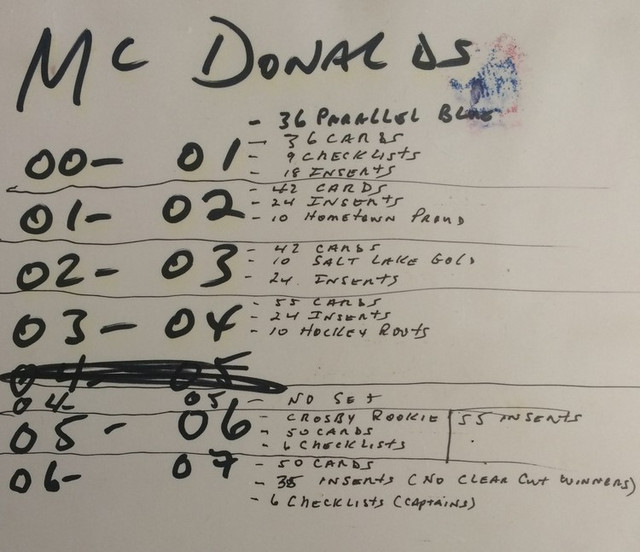 McDONALDS
- 36 PARALLEL BLUE
00 - 01 - 36 CARDS
- 9 CHECKLISTS
- 18 INSERTS
01 - 02 - 42 CARDS
- 24 INSERTS
- 10 HOMETOWN PROUD
02 - 03 - 42 CARDS
- 10 SALT LAKE GOLD
- 24 INSERTS
03 - 04 - 55 CARDS
- 24 INSERTS
- 10 HOCKEY ROOTS
04 - 05
04 - 05 - NO SET
05 - 06 - CROSBY ROOKIE 55 INSERTS
- 50 CARDS
- 6 CHECKLISTS
06 - 07 - 50 CARDS
- 35 INSERTS (NO CLEAR CUT WINNERS)
- 6 CHECKLISTS (CAPTAINS)